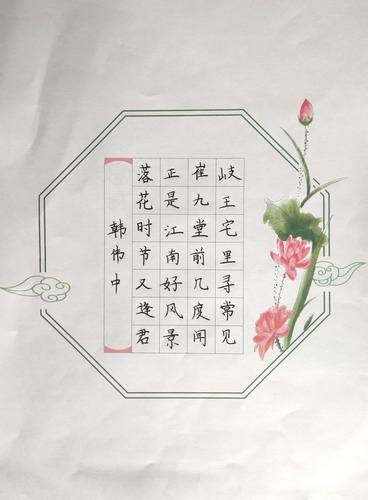 岐王宅里寻常见
崔九堂前几度闻
正是江南好风景
落花时节又逢君
韩伟中